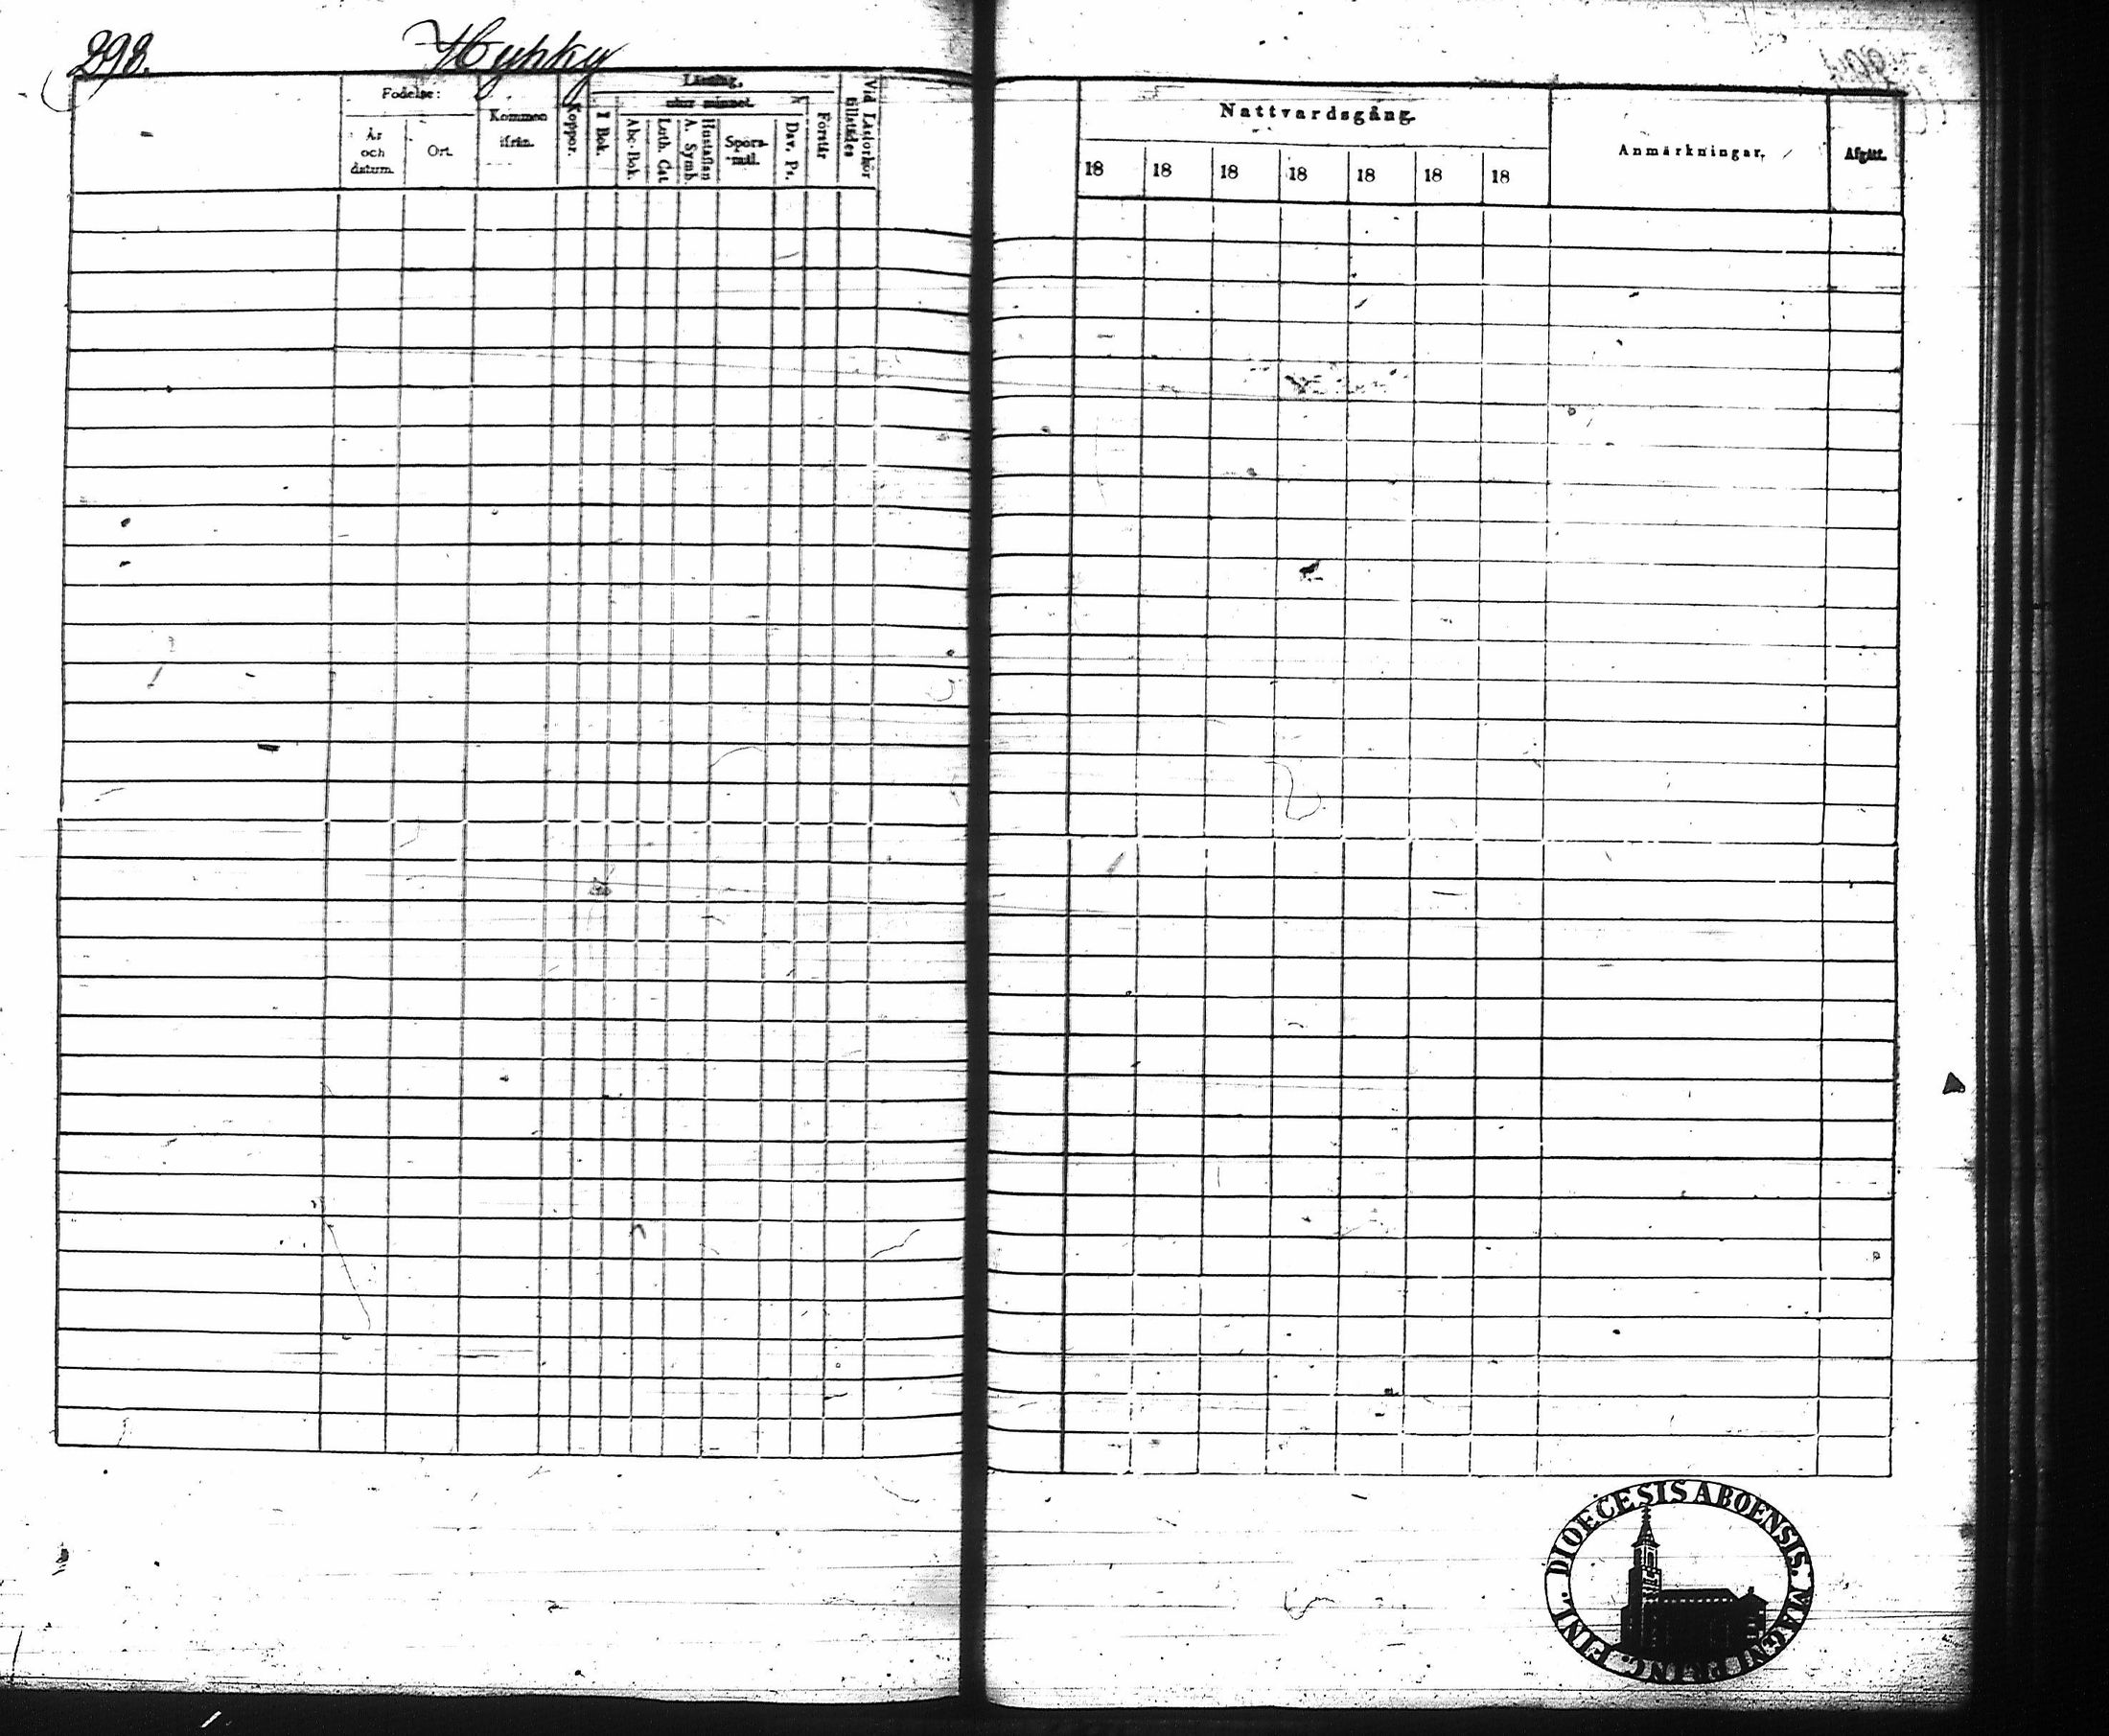 298. Hyhky
Födelse:
År och datum.
Ort.
Kommen ifrån.
Koppor.
Läsning.
utur minnet.
I Bok.
Abc-Bok.
Luth. Cat.
A. Symb.
Hustaflan
Spörs-mål.
Dav. Ps.
Förstår
Vid Läsförhör tillstädes
Nattvardsgång.
18 18 18 18 18 18 18
Anmärkningar.
Afgått.
DIOECESIS ABOENSIS. MAGNI PRINC. FINL.